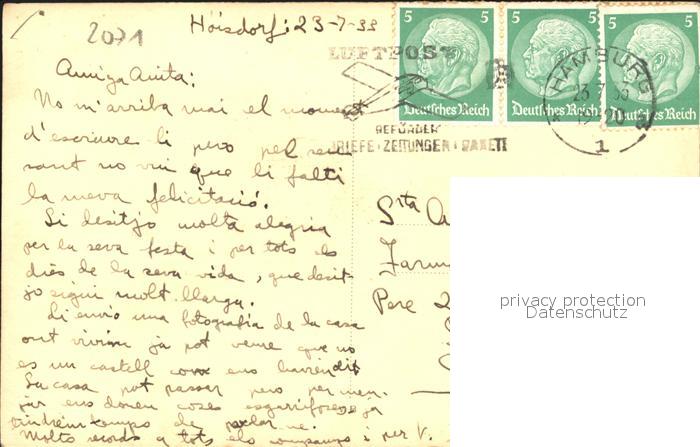 2071
Hoisdorf: 23-7-33
5 5 5 5 5
LUFTPOST
HAMBURG
Deutsches Reich Deutsches Reich Deutsches Reich
BEFÖRDERT
BRIEFE · ZEITUNGEN · PAKETE
1
Amiga Anita:
No m'arriba mai el moment
d'escriure li pero pel seu
sant no vui que li falti
la meva felicitació.
Li desitjo molta alegria
per la seva festa i per tots els
dies de la seva vida, que desit-
jo sigui molt llarga.
Li envio una fotografia de la casa
ont vivim ja pot veure que no
es un castell com ens havien dit
La casa pot passar pero per men-
jar ens donen coses esgarrifoses ja
tindrem temps de parlar-ne.
Molts records a tots els companys i per V.
Srta A
Farm
Pere
privacy protection
Datenschutz